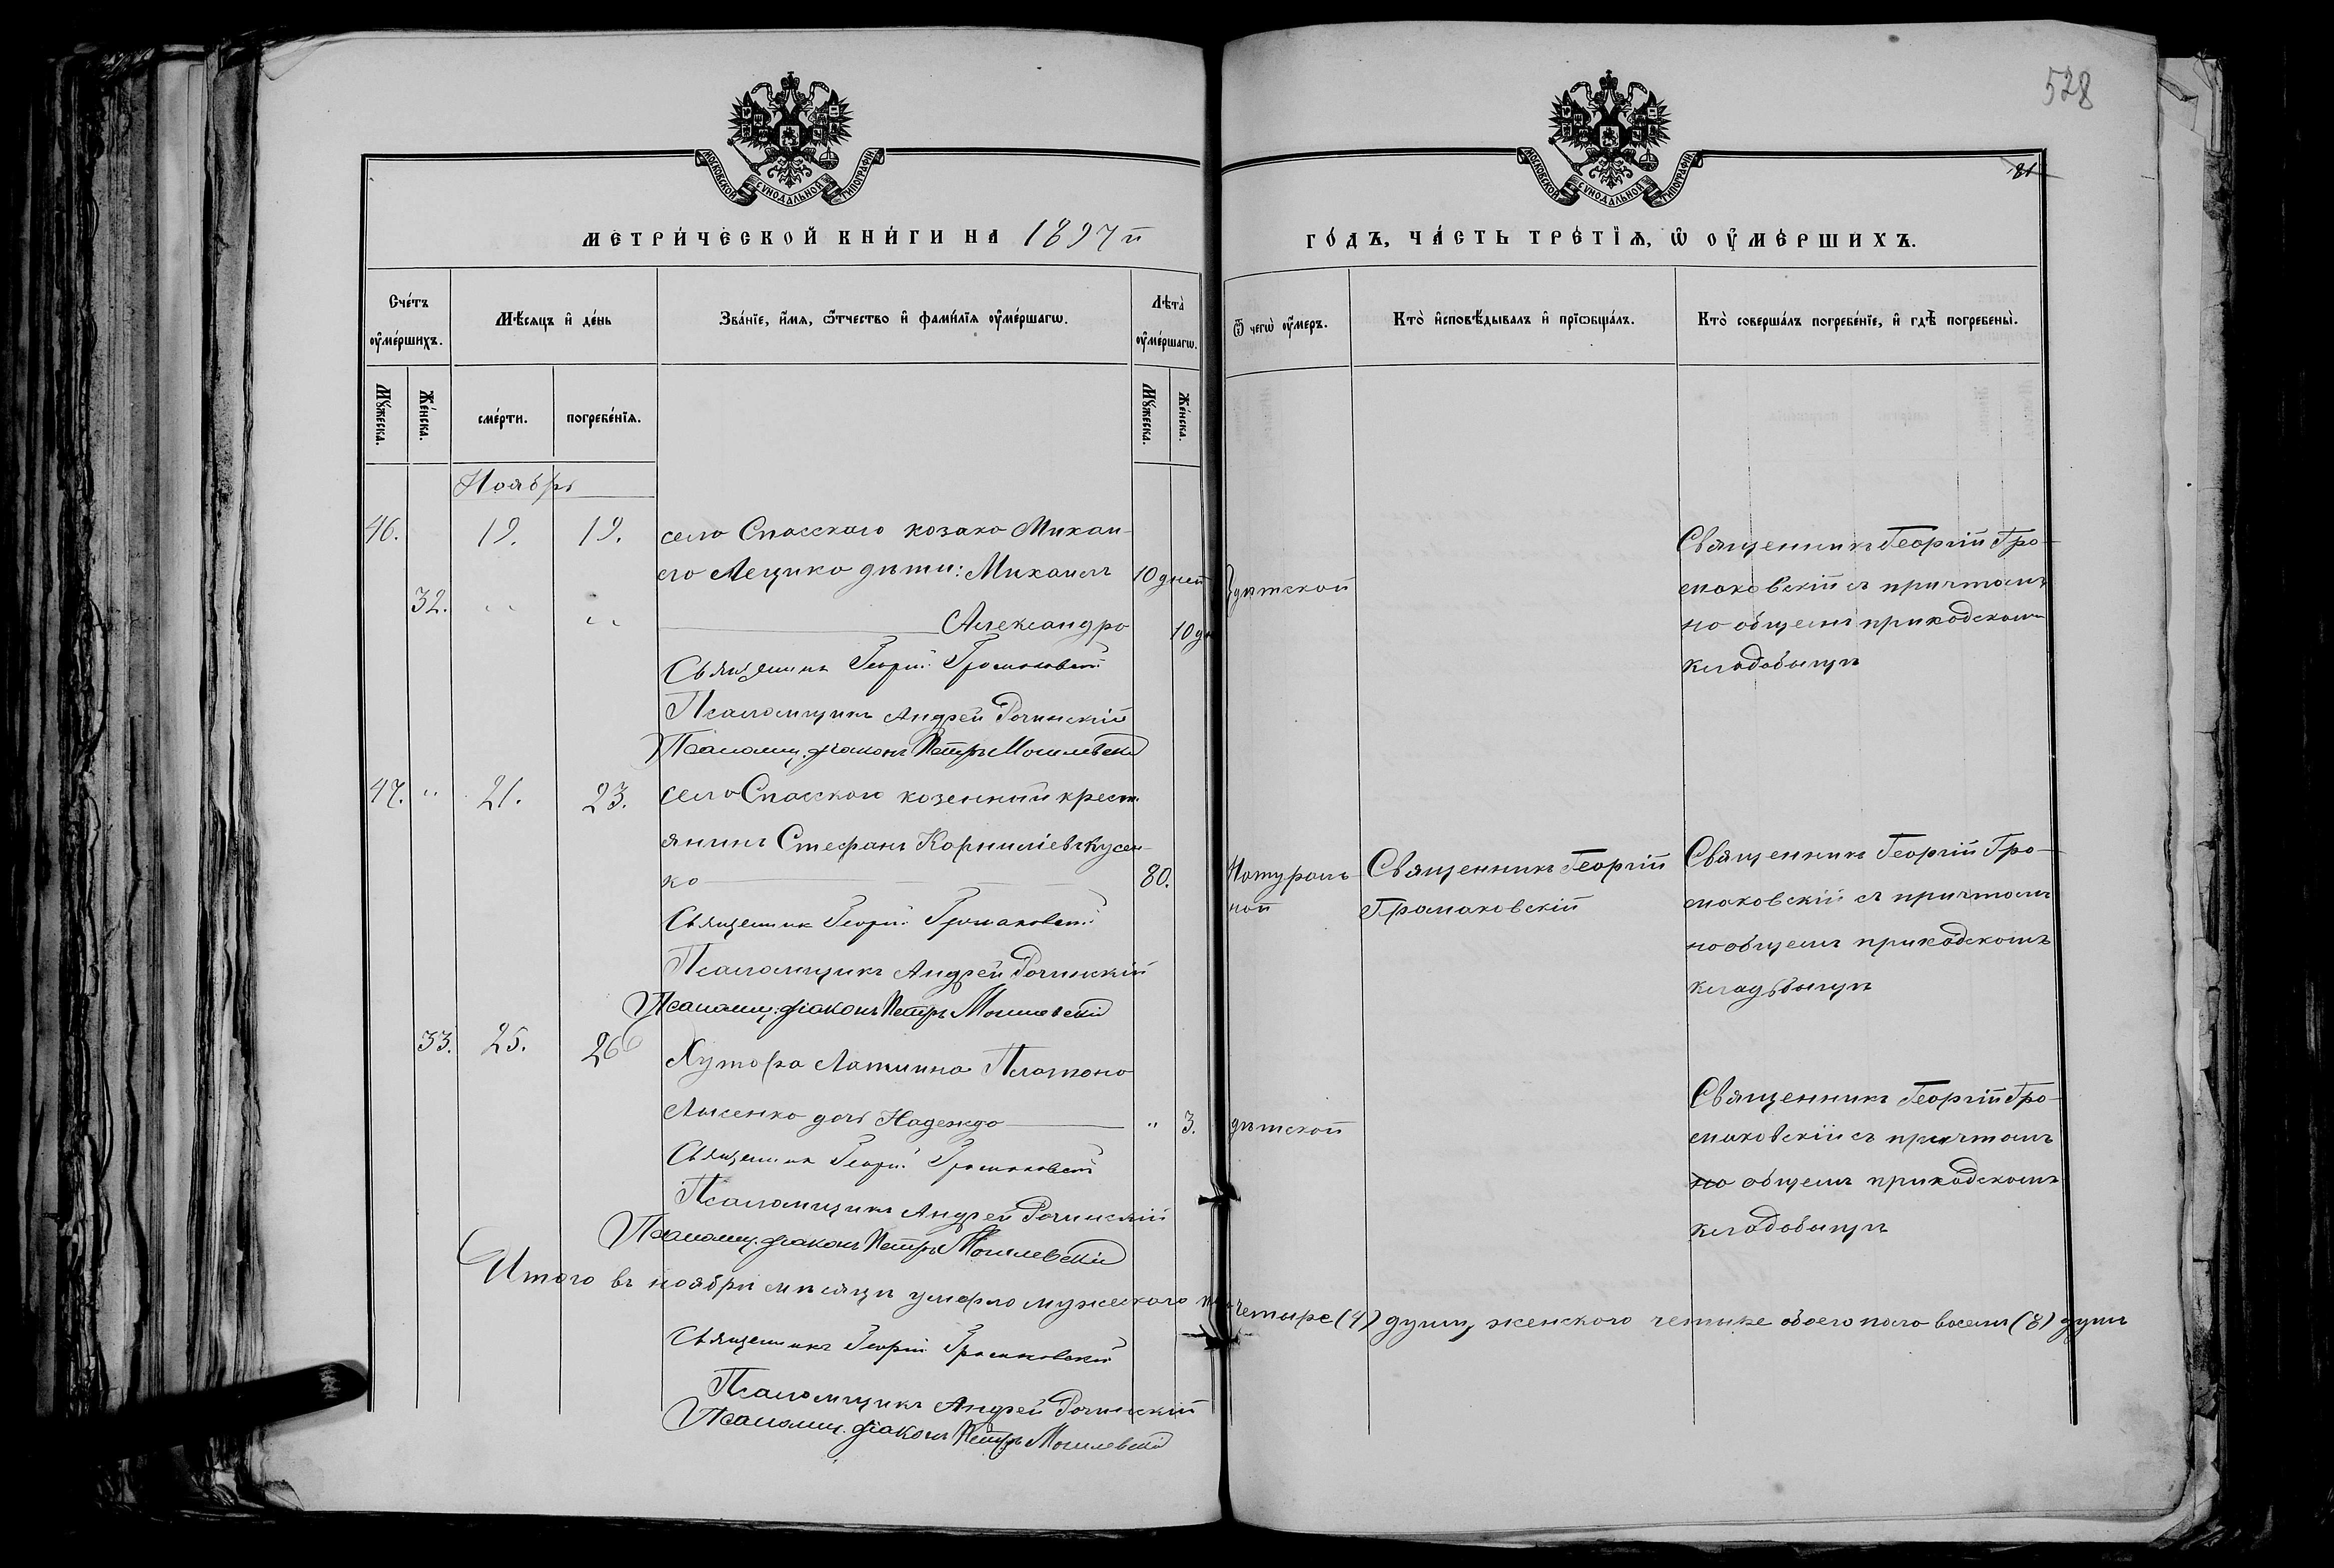 528
81
МОСКОВСКОЙ СѴНОДАЛЬНОЙ ТИПОГРАФІИ
МОСКОВСКОЙ СѴНОДАЛЬНОЙ ТИПОГРАФІИ
МЕТРИ́ЧЕСКОЙ КНИ́ГИ НА 1897 й
ГО́ДЪ, ЧА́СТЬ ТРЕ́ТІѦ, Ѡ ОУ҆МЕ́РШИХЪ.
Сче́тъ оу҆ме́ршихъ.
Мѣ́сѧцъ и҆ де́нь
Зва́нїе, и҆́мѧ, ѻ҆́тчество и҆ фамѝлїѧ оу҆ме́ршагѡ.
Лѣ́та оу҆ме́ршагѡ.
Ѿ чегѡ̀ оу҆́меръ.
Кто̀ и҆сповѣ́дывалъ и҆ прїѡбща́лъ.
Кто̀ соверша́лъ погребе́нїе, и҆ гдѣ̀ погребены̀.
Мꙋ́жеска.
Же́нска.
сме́рти.
погребе́нїѧ.
Мꙋ́жеска.
Же́нска.
Ноябрь
46. 19. 19. села Спасскаго козака Михаи-
его Лецика дѣти: Михаилъ 10 дней дѣтской
32. " " Александра 10 дн
Священникъ Георгій Гро-
маковскій съ причтомъ
на общемъ приходскомъ
кладбищѣ
Священникъ Георгій Громаковскій
Псаломщикъ Андрей Рочинскій
Псаломщ. діаконъ Петръ Могилевскій
47. " 21. 23. села Спасскаго козенный крест
янинъ Стефанъ Корниліевъ Кусен-
ко 80. Натураль
ной
Священникъ Георгій
Громаковскій
Священникъ Георгій Гро-
маковскій съ причтомъ
на общемъ приходскомъ
кладбищѣ
Священникъ Георгій Громаковскій
Псаломщикъ Андрей Рочинскій
Псаломщ. діаконъ Петръ Могилевскій
33. 25. 26 Хутора Латишна Платона
Лысенка дочь Надежда " 3. дѣтской
Священникъ Георгій Гро-
маковскій съ причтомъ
на общемъ приходскомъ
кладбищѣ
Священникъ Георгій Громаковскій
Псаломщикъ Андрей Рочинскій
Псаломщ. діаконъ Петръ Могилевскій
Итого въ ноябрѣ мѣсяцѣ умерло мужескаго четыре (4) души, женского четыре обоего пола восемь (8) душъ
Священникъ Георгій Громаковскій
Псаломщикъ Андрей Рочинскій
Псаломщ. діаконъ Петръ Могилевскій